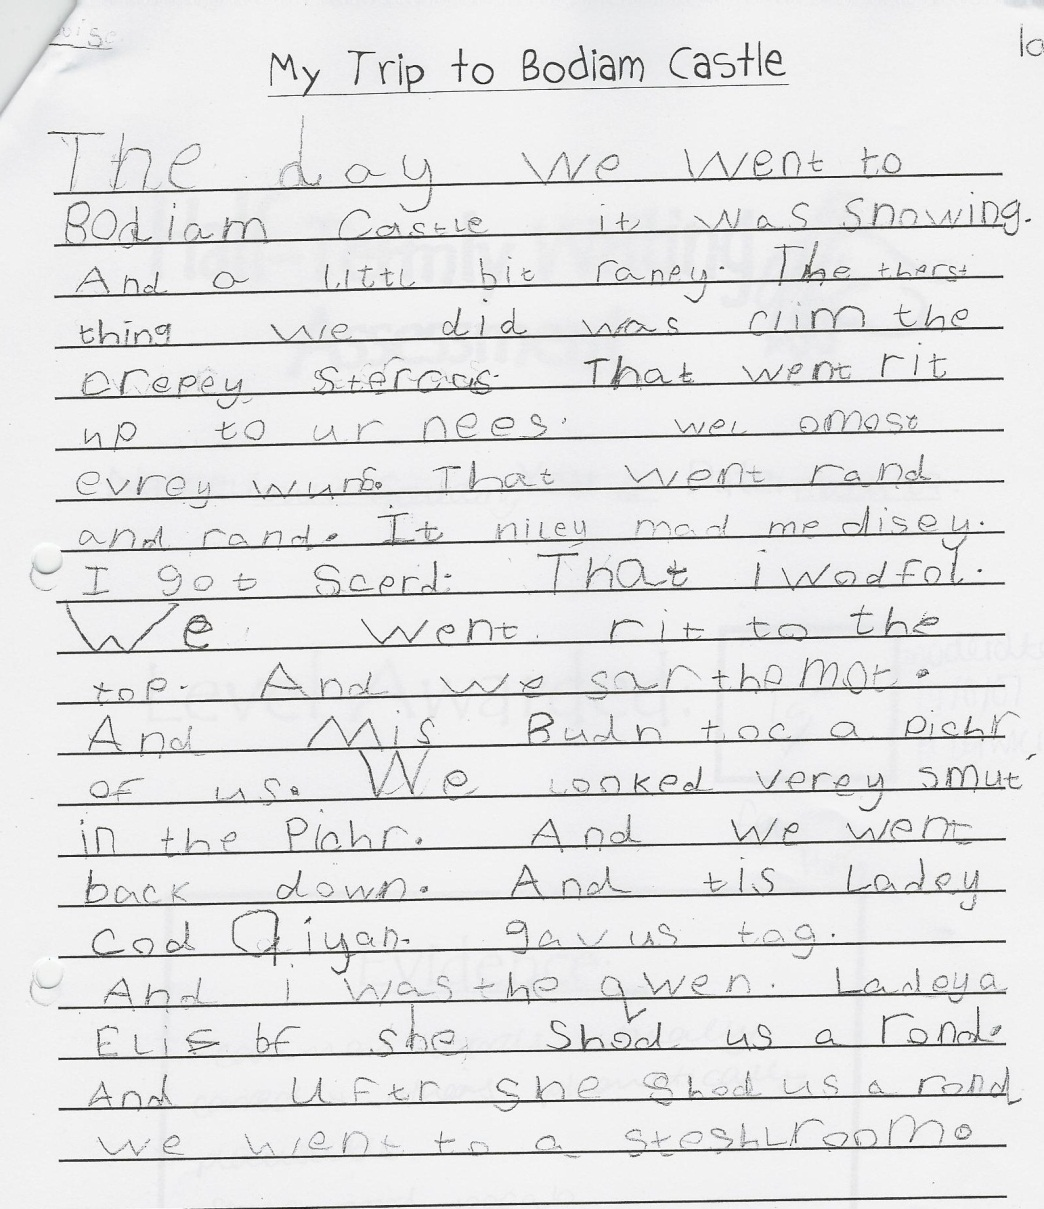 My Trip to Bodiam Castle
The day we went to
Bodiam Castle it was snowing.
And a littl bit raney. The therst
thing we did was clim the
crepey steracas. That went rit
up to ur nees. wel omost
evrey wunb. That went rand
and rand. It niley mad me disey.
I got scerd. That i wod fol.
We went rit to the
top. And we sar the mot.
And Mis Budn toc a pichr
of us. We looked verey smut
in the Pichr. And we went
back down. And tis Ladey
cod Diyan. gav us tag.
And i was the qwen. Ladeya
Elis bf she shod us a rond.
And Uftr she shod us a rond
we went to a steshl room.